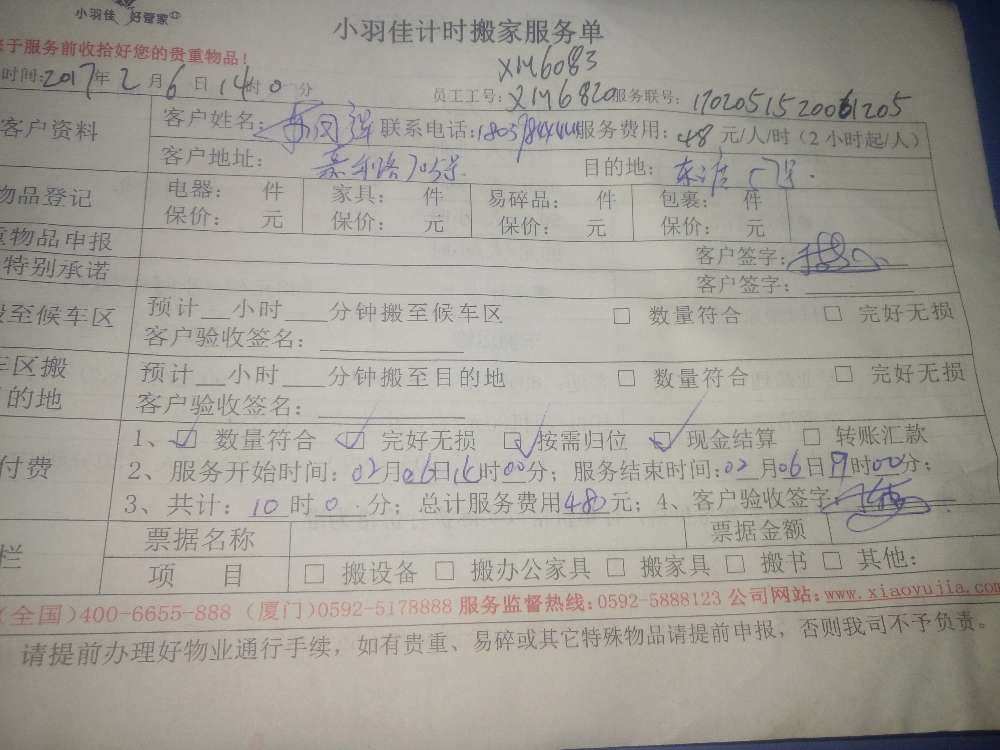 小羽佳 好管家
小羽佳计时搬家服务单
于服务前收拾好您的贵重物品！
XM6083
时间:2017年2月6日14时0分 员工工号: XM6820 服务联号:
客户资料 客户姓名: 联系电话: 服务费用: 48 元/人/时（2小时起/人）
客户地址: 目的地:
物品登记 电器: 件 家具: 件 易碎品: 件 包裹: 件
保价: 元 保价: 元 保价: 元 保价: 元
重物品申报 客户签字:
特别承诺 客户签字:
搬至候车区 预计___小时___分钟搬至候车区 □ 数量符合 □ 完好无损
客户验收签名:
车区搬 预计___小时___分钟搬至目的地 □ 数量符合 □ 完好无损
的地 客户验收签名:
付费 1、☑ 数量符合 ☑ 完好无损 ☑ 按需归位 ☑ 现金结算 □ 转账汇款
2、服务开始时间:02月06日14时00分；服务结束时间:02月06日19时00分；
3、共计: 10 时 0 分；总计服务费用480元；4、客户验收签字:
栏 票据名称 票据金额
项 目 □ 搬设备 □ 搬办公家具 □ 搬家具 □ 搬书 □ 其他:
(全国)400-6655-888（厦门)0592-5178888 服务监督热线:0592-5888123 公司网站:www.xiaoyujia.com
请提前办理好物业通行手续，如有贵重、易碎或其它特殊物品请提前申报，否则我司不予负责。